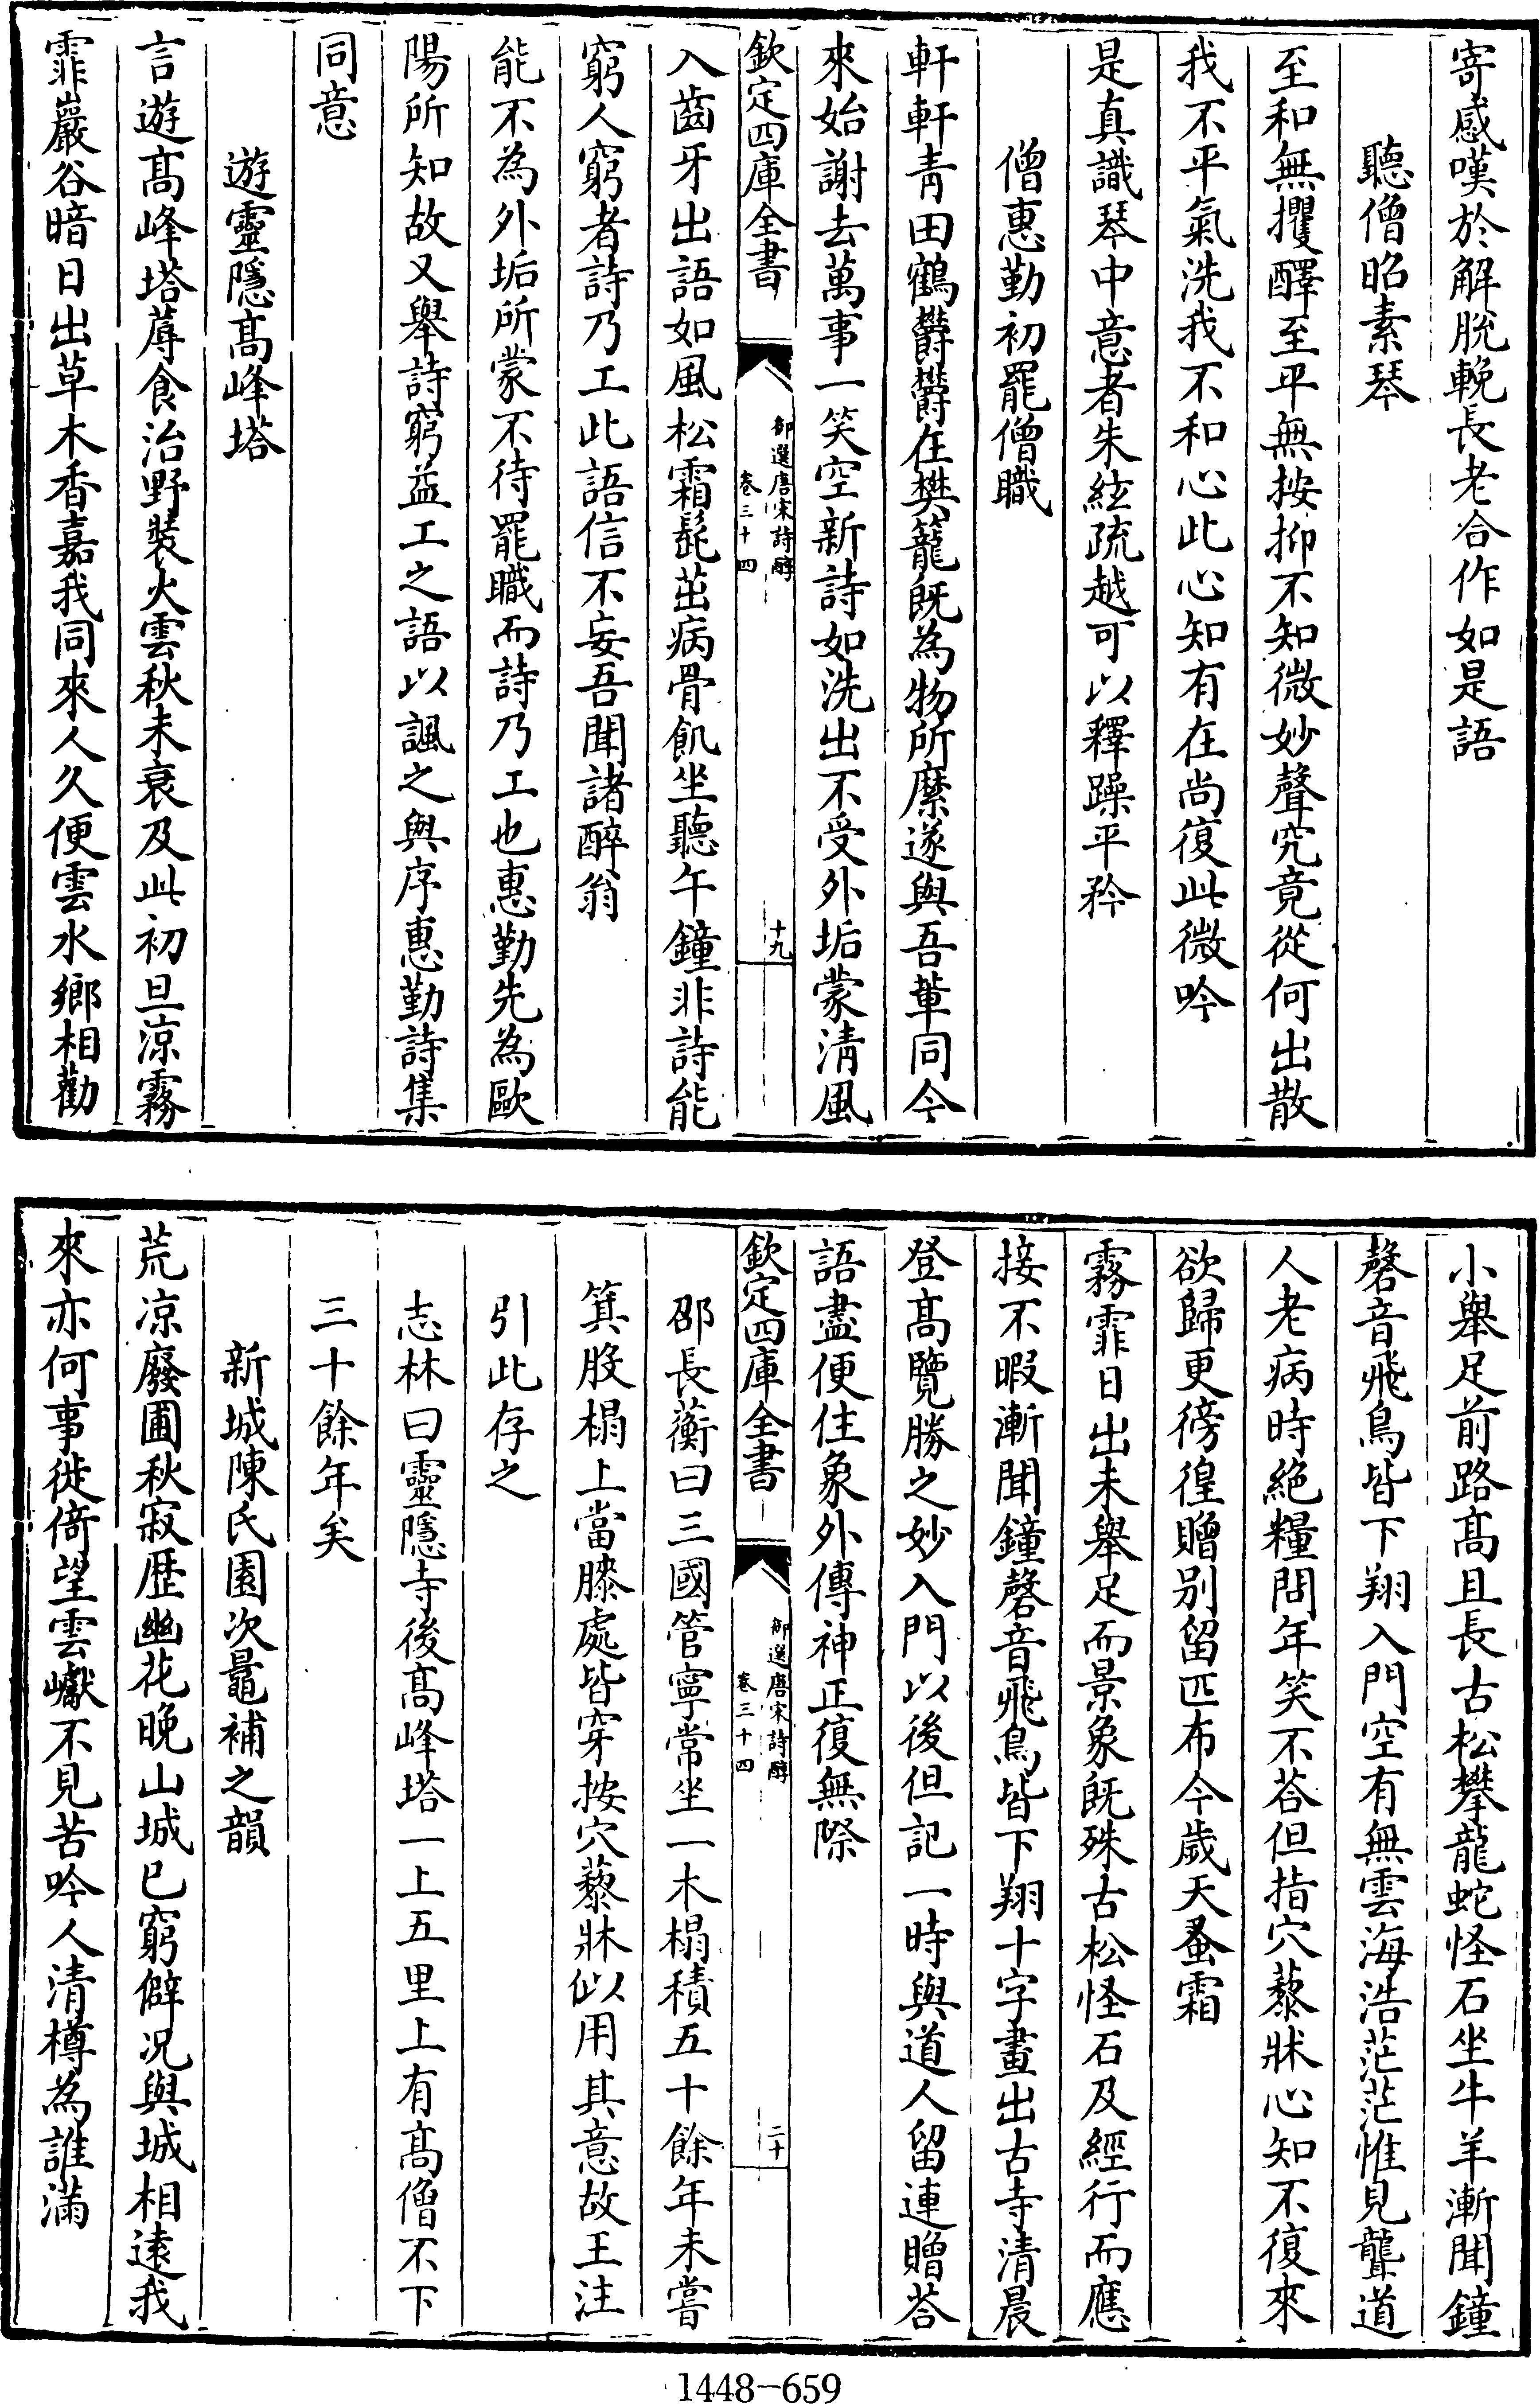 寄感嘆於解脫輓長老合作如是語
聽僧昭素琴
至和無攫醳至平無按抑不知微妙聲究竟從何出散
我不平氣洗我不和心此心知有在尚復此微吟
是真識琴中意者朱絃疏越可以釋躁平矜
僧惠勤初罷僧職
軒軒青田鶴鬱鬱在樊籠既為物所縻遂與吾軰同今
來始謝去萬事一笑空新詩如洗出不受外垢蒙清風
欽定四庫全書
御選唐宋詩醇
卷三十四
十九
入齒牙出語如風松霜髭茁病骨飢坐聽午鐘非詩能
窮人窮者詩乃工此語信不妄吾聞諸醉翁
能不為外垢所蒙不待罷職而詩乃工也惠勤先為歐
陽所知故又舉詩窮益工之語以諷之與序惠勤詩集
同意
遊靈隱髙峰塔
言遊髙峰塔蓐食治野裝火雲秋未衰及此初旦涼霧
霏巖谷暗日出草木香嘉我同來人久便雲水鄉相勸
小舉足前路髙且長古松攀龍蛇怪石坐牛羊漸聞鐘
磬音飛鳥皆下翔入門空有無雲海浩茫茫惟見聾道
人老病時絶糧問年笑不荅但指穴藜牀心知不復來
欲歸更徬徨贈别留匹布今歲天蚤霜
霧霏日出未舉足而景象既殊古松怪石及經行而應
接不暇漸聞鐘磬音飛鳥皆下翔十字畫出古寺清晨
登髙覽勝之妙入門以後但記一時與道人留連贈荅
語盡便住象外傳神正復無際
欽定四庫全書
御選唐宋詩醇
卷三十四
二十
邵長蘅曰三國管寧常坐一木榻積五十餘年未嘗
箕股榻上當膝處皆穿按穴藜牀似用其意故王注
引此存之
志林曰靈隱寺後髙峰塔一上五里上有髙僧不下
三十餘年矣
新城陳氏園次鼂補之韻
荒凉廢圃秋寂歴幽花晚山城已窮僻况與城相遠我
來亦何事徙倚望雲巘不見苦吟人清樽為誰滿
1448-659